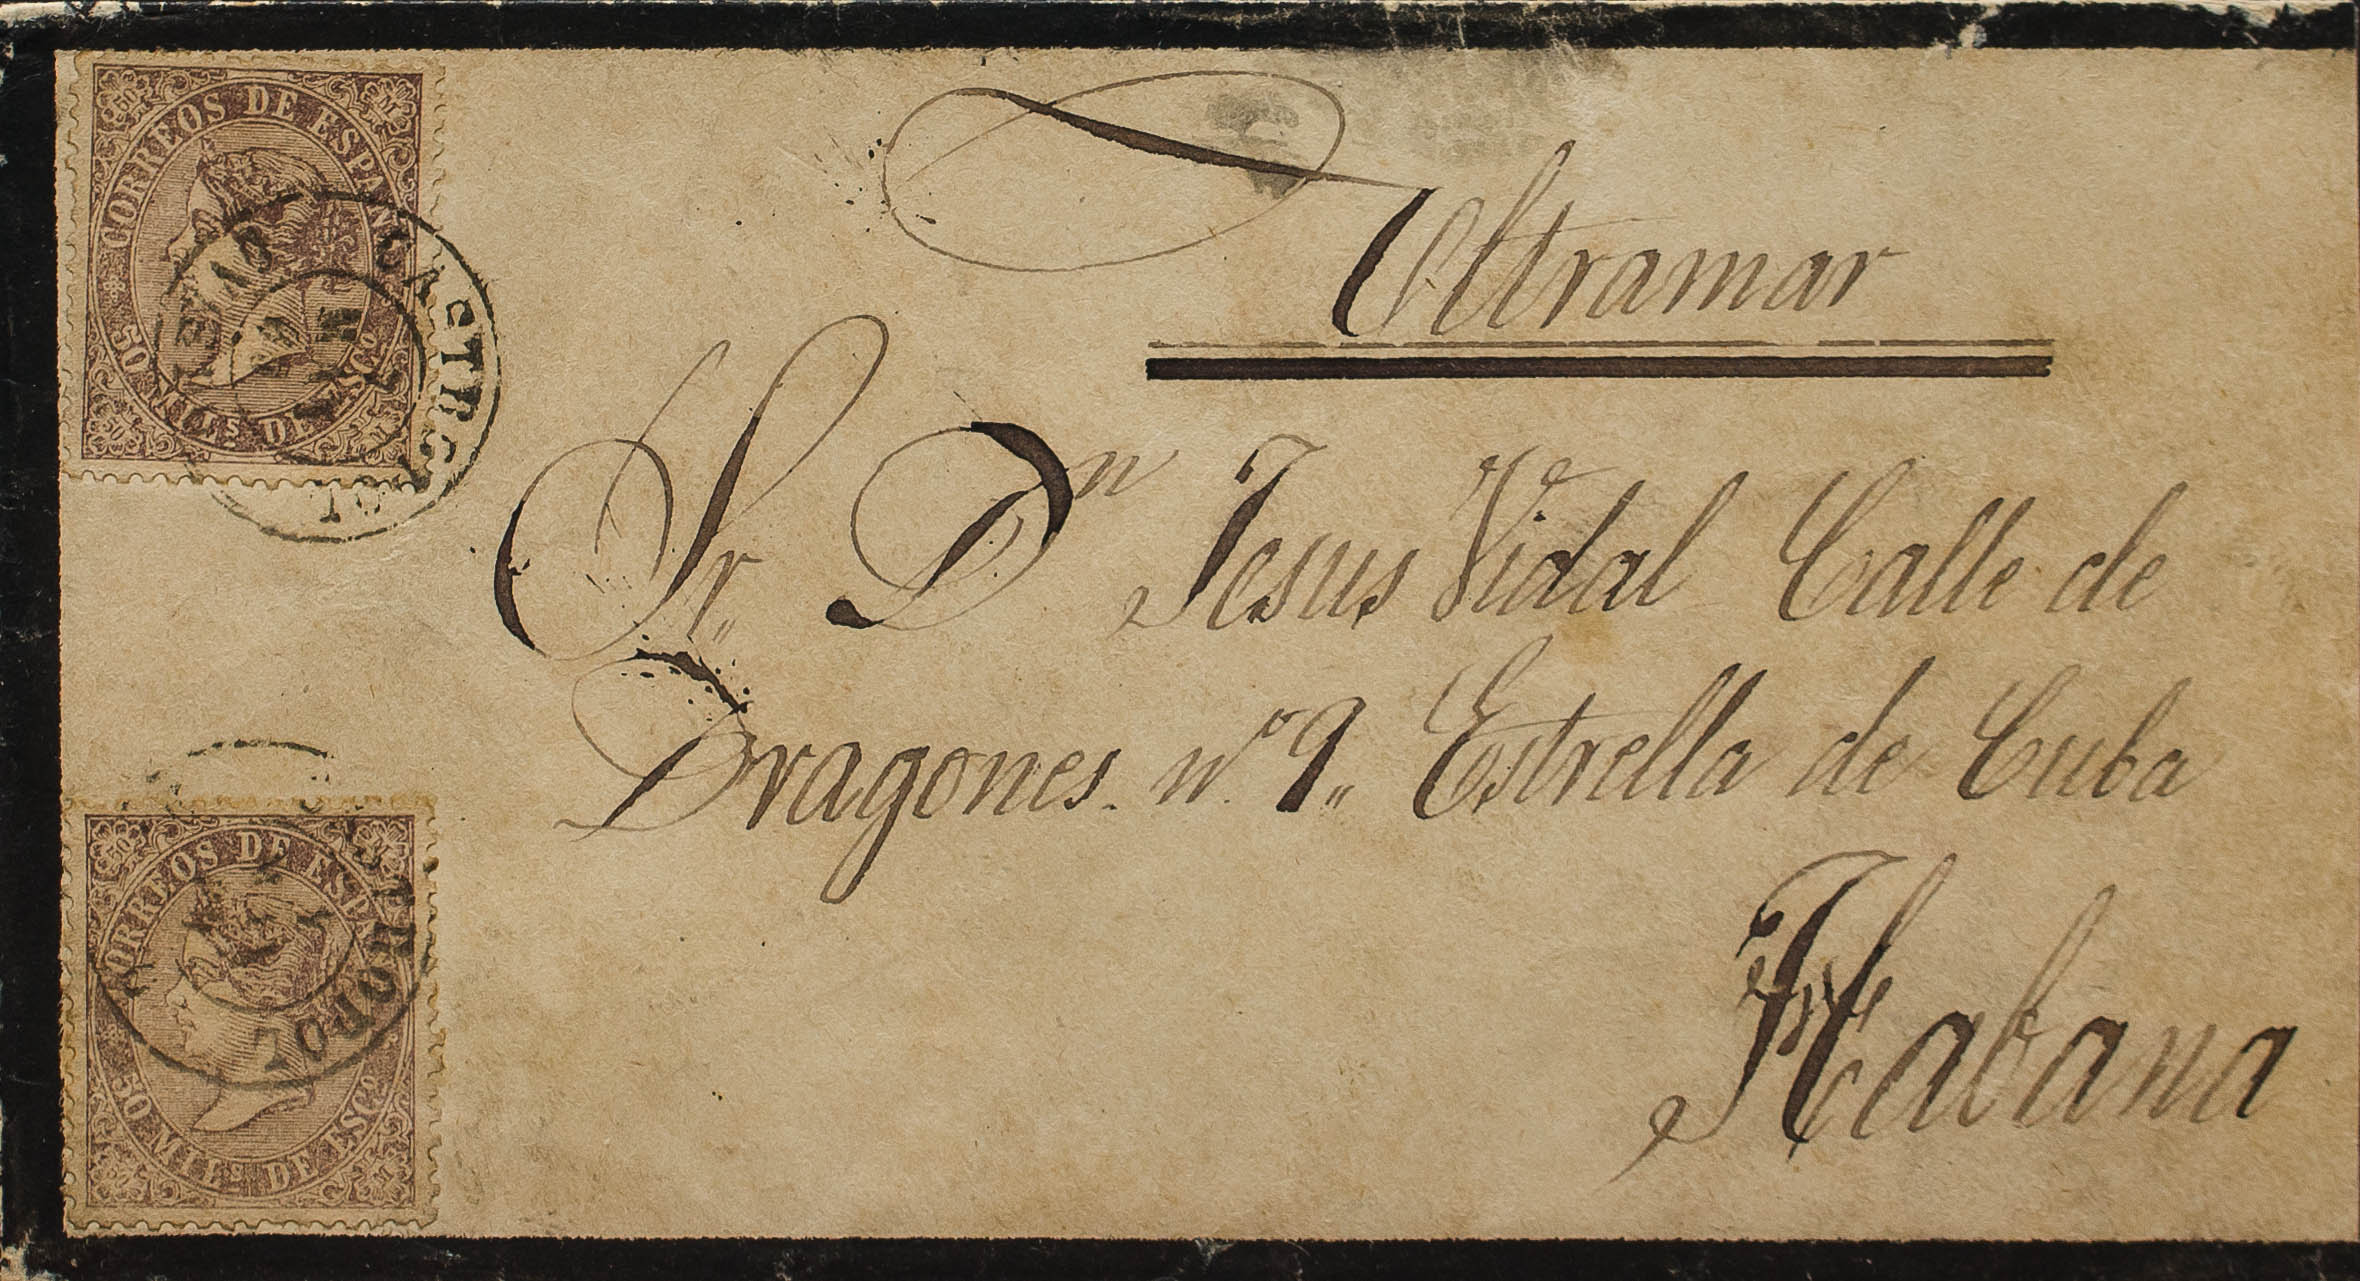 CORREOS DE ESPAÑA
50 MILs DE ESCo
CASTROPOL
Ultramar
Sr. Dn Jesus Vidal Calle de
Dragones. nº 9.. Estrella de Cuba
Habana
CORREOS DE ESPAÑA
50 MILs DE ESCo